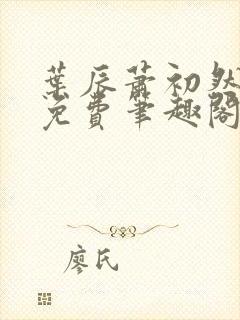 葉辰蕭初然
免費筆趣閣
廖氏